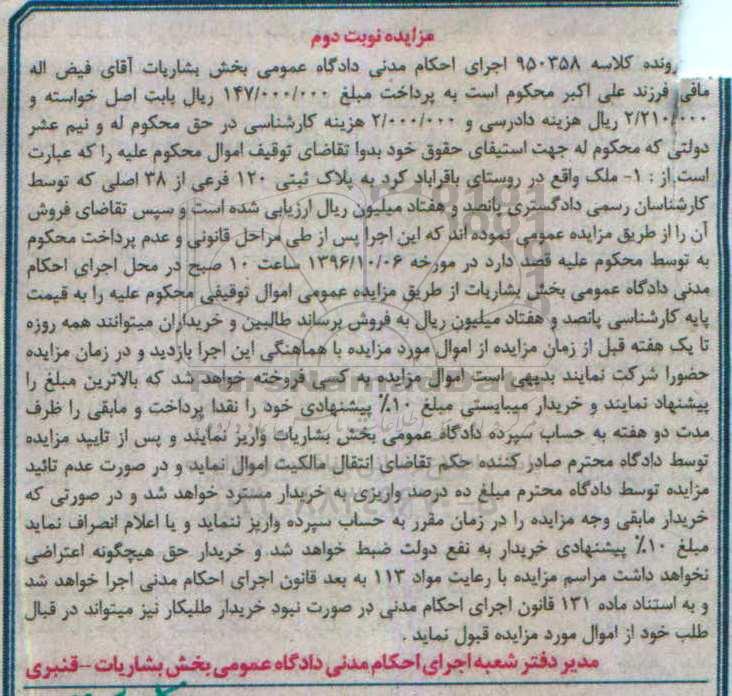 مزایده نوبت دوم
رونده کلاسه ۹۵۰۳۵۸ اجرای احکام مدنی دادگاه عمومی بخش بشاریات آقای فیض اله
مافی فرزند علی اکبر محکوم است به پرداخت مبلغ ۱۴۷/۰۰۰/۰۰۰ ریال بابت اصل خواسته و
۲/۲۱۰/۰۰۰ ریال هزینه دادرسی و ۲/۰۰۰/۰۰۰ هزینه کارشناسی در حق محکوم له و نیم عشر
دولتی که محکوم له جهت استیفای حقوق خود بدوا تقاضای توقیف اموال محکوم علیه را که عبارت
است از : ۱- ملک واقع در روستای باقراباد کرد به پلاک ثبتی ۱۲۰ فرعی از ۳۸ اصلی که توسط
کارشناسان رسمی دادگستری پانصد و هفتاد میلیون ریال ارزیابی شده است و سپس تقاضای فروش
آن را از طریق مزایده عمومی نموده اند که این اجرا پس از طی مراحل قانونی و عدم پرداخت محکوم
به توسط محکوم علیه قصد دارد در مورخه ۱۳۹۶/۱۰/۰۶ ساعت ۱۰ صبح در محل اجرای احکام
مدنی دادگاه عمومی بخش بشاریات از طریق مزایده عمومی اموال توقیفی محکوم علیه را به قیمت
پایه کارشناسی پانصد و هفتاد میلیون ریال به فروش برساند طالبین و خریداران میتوانند همه روزه
تا یک هفته قبل از زمان مزایده از اموال مورد مزایده با هماهنگی این اجرا بازدید و در زمان مزایده
حضورا شرکت نمایند بدیهی است اموال مزایده به کسی فروخته خواهد شد که بالاترین مبلغ را
پیشنهاد نمایند و خریدار میبایستی مبلغ ۱۰٪ پیشنهادی خود را نقدا پرداخت و مابقی را ظرف
مدت دو هفته به حساب سپرده دادگاه عمومی بخش بشاریات واریز نمایند و پس از تایید مزایده
توسط دادگاه محترم صادر کننده حکم تقاضای انتقال مالکیت اموال نماید و در صورت عدم تائید
مزایده توسط دادگاه محترم مبلغ ده درصد واریزی به خریدار مسترد خواهد شد و در صورتی که
خریدار مابقی وجه مزایده را در زمان مقرر به حساب سپرده واریز ننماید و یا اعلام انصراف نماید
مبلغ ۱۰٪ پیشنهادی خریدار به نفع دولت ضبط خواهد شد و خریدار حق هیچگونه اعتراضی
نخواهد داشت مراسم مزایده با رعایت مواد ۱۱۳ به بعد قانون اجرای احکام مدنی اجرا خواهد شد
و به استناد ماده ۱۳۱ قانون اجرای احکام مدنی در صورت نبود خریدار طلبکار نیز میتواند در قبال
طلب خود از اموال مورد مزایده قبول نماید .
مدیر دفتر شعبه اجرای احکام مدنی دادگاه عمومی بخش بشاریات – قنبری